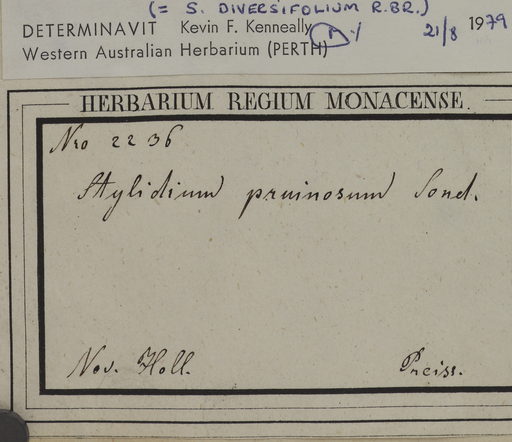 (= S. DIVERSIFOLIUM R.BR.)
DETERMINAVIT Kevin F. Kenneally 21/8 1979
Western Australian Herbarium (PERTH)
HERBARIUM REGIUM MONACENSE.
Nro 2236
Stylidium pruinosum Sond.
Nov. Holl. Preiss.